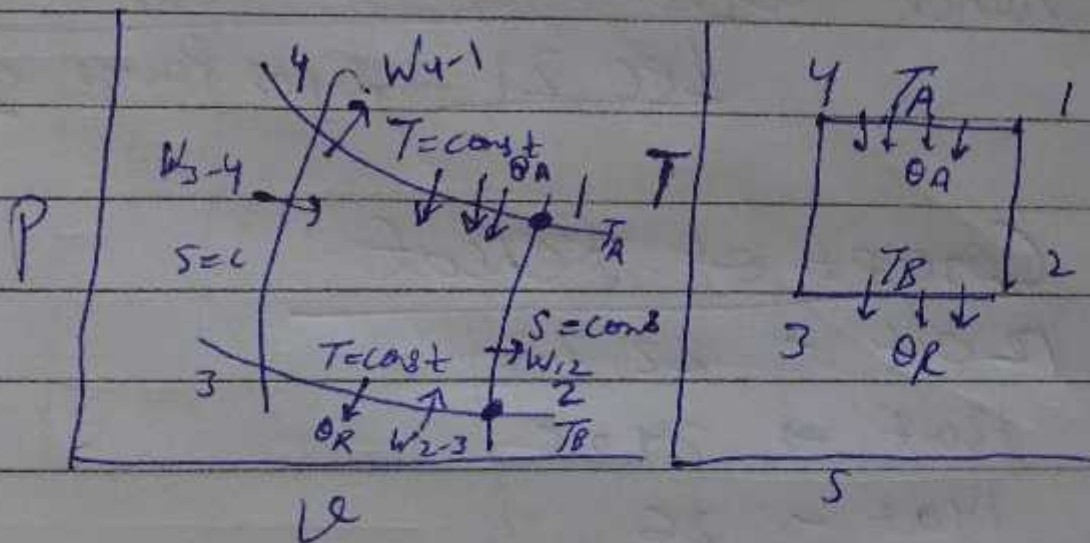 4 W4-1
T=const
W3-4
θA
1
TA
P
S=c
S=cons
W12
T=const
2
3
θR
W2-3
TB
V
4 TA 1
T
θA
TB 2
3
θR
S